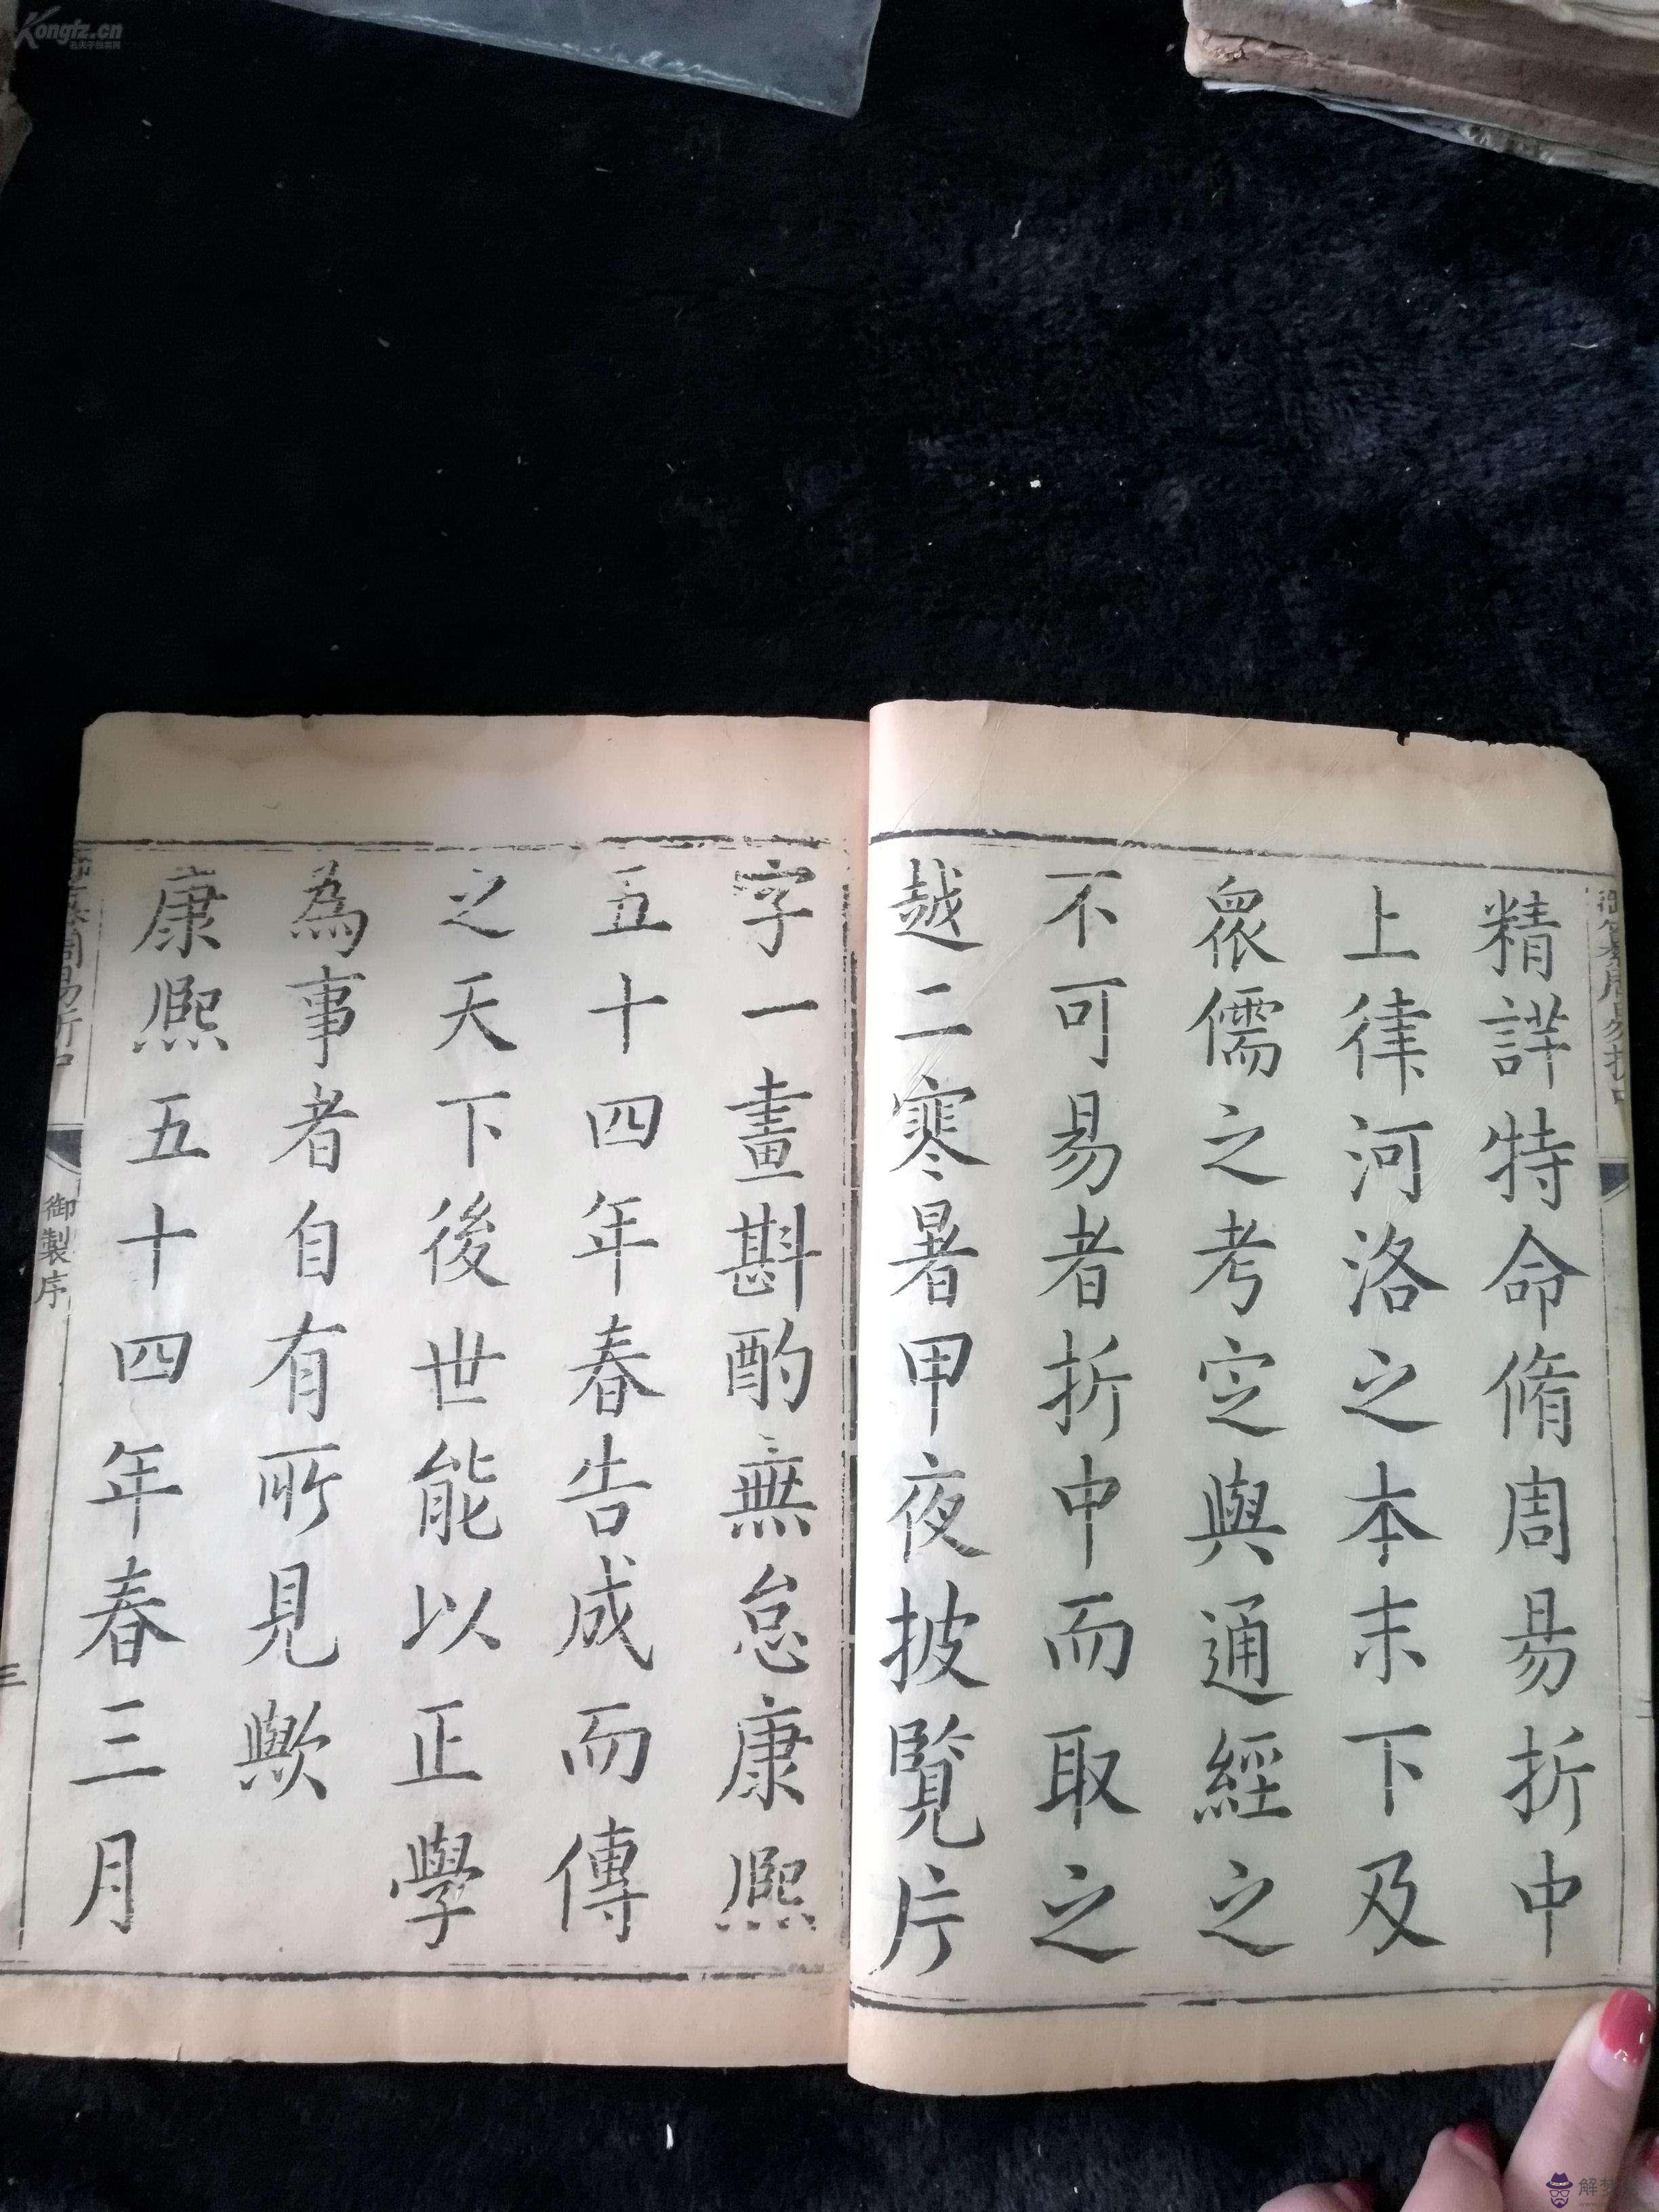 精詳特命脩周易折中
上律河洛之本末下及
衆儒之考定與通經之
不可易者折中而取之
越二寒暑甲夜披覽片
字一畫斟酌無怠康熙
五十四年春告成而傳
之天下後世能以正學
為事者自有所見歟
康熙五十四年春三月
御製序
三
Kongfz.cn